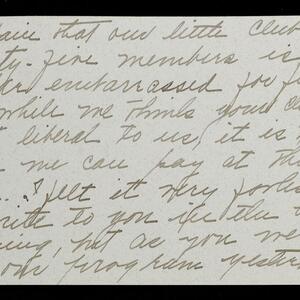 that our little Club
ty-five members is
embarrassed for f
while we think your c
t liberal to us, it is
we can pay at th
I felt it very foolis
write to you in the
ning, but as you we
our program yester